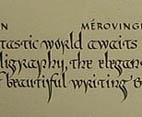 N MÉROVING
tastic world awaits
ligraphy, the elegan
f beautiful writing &